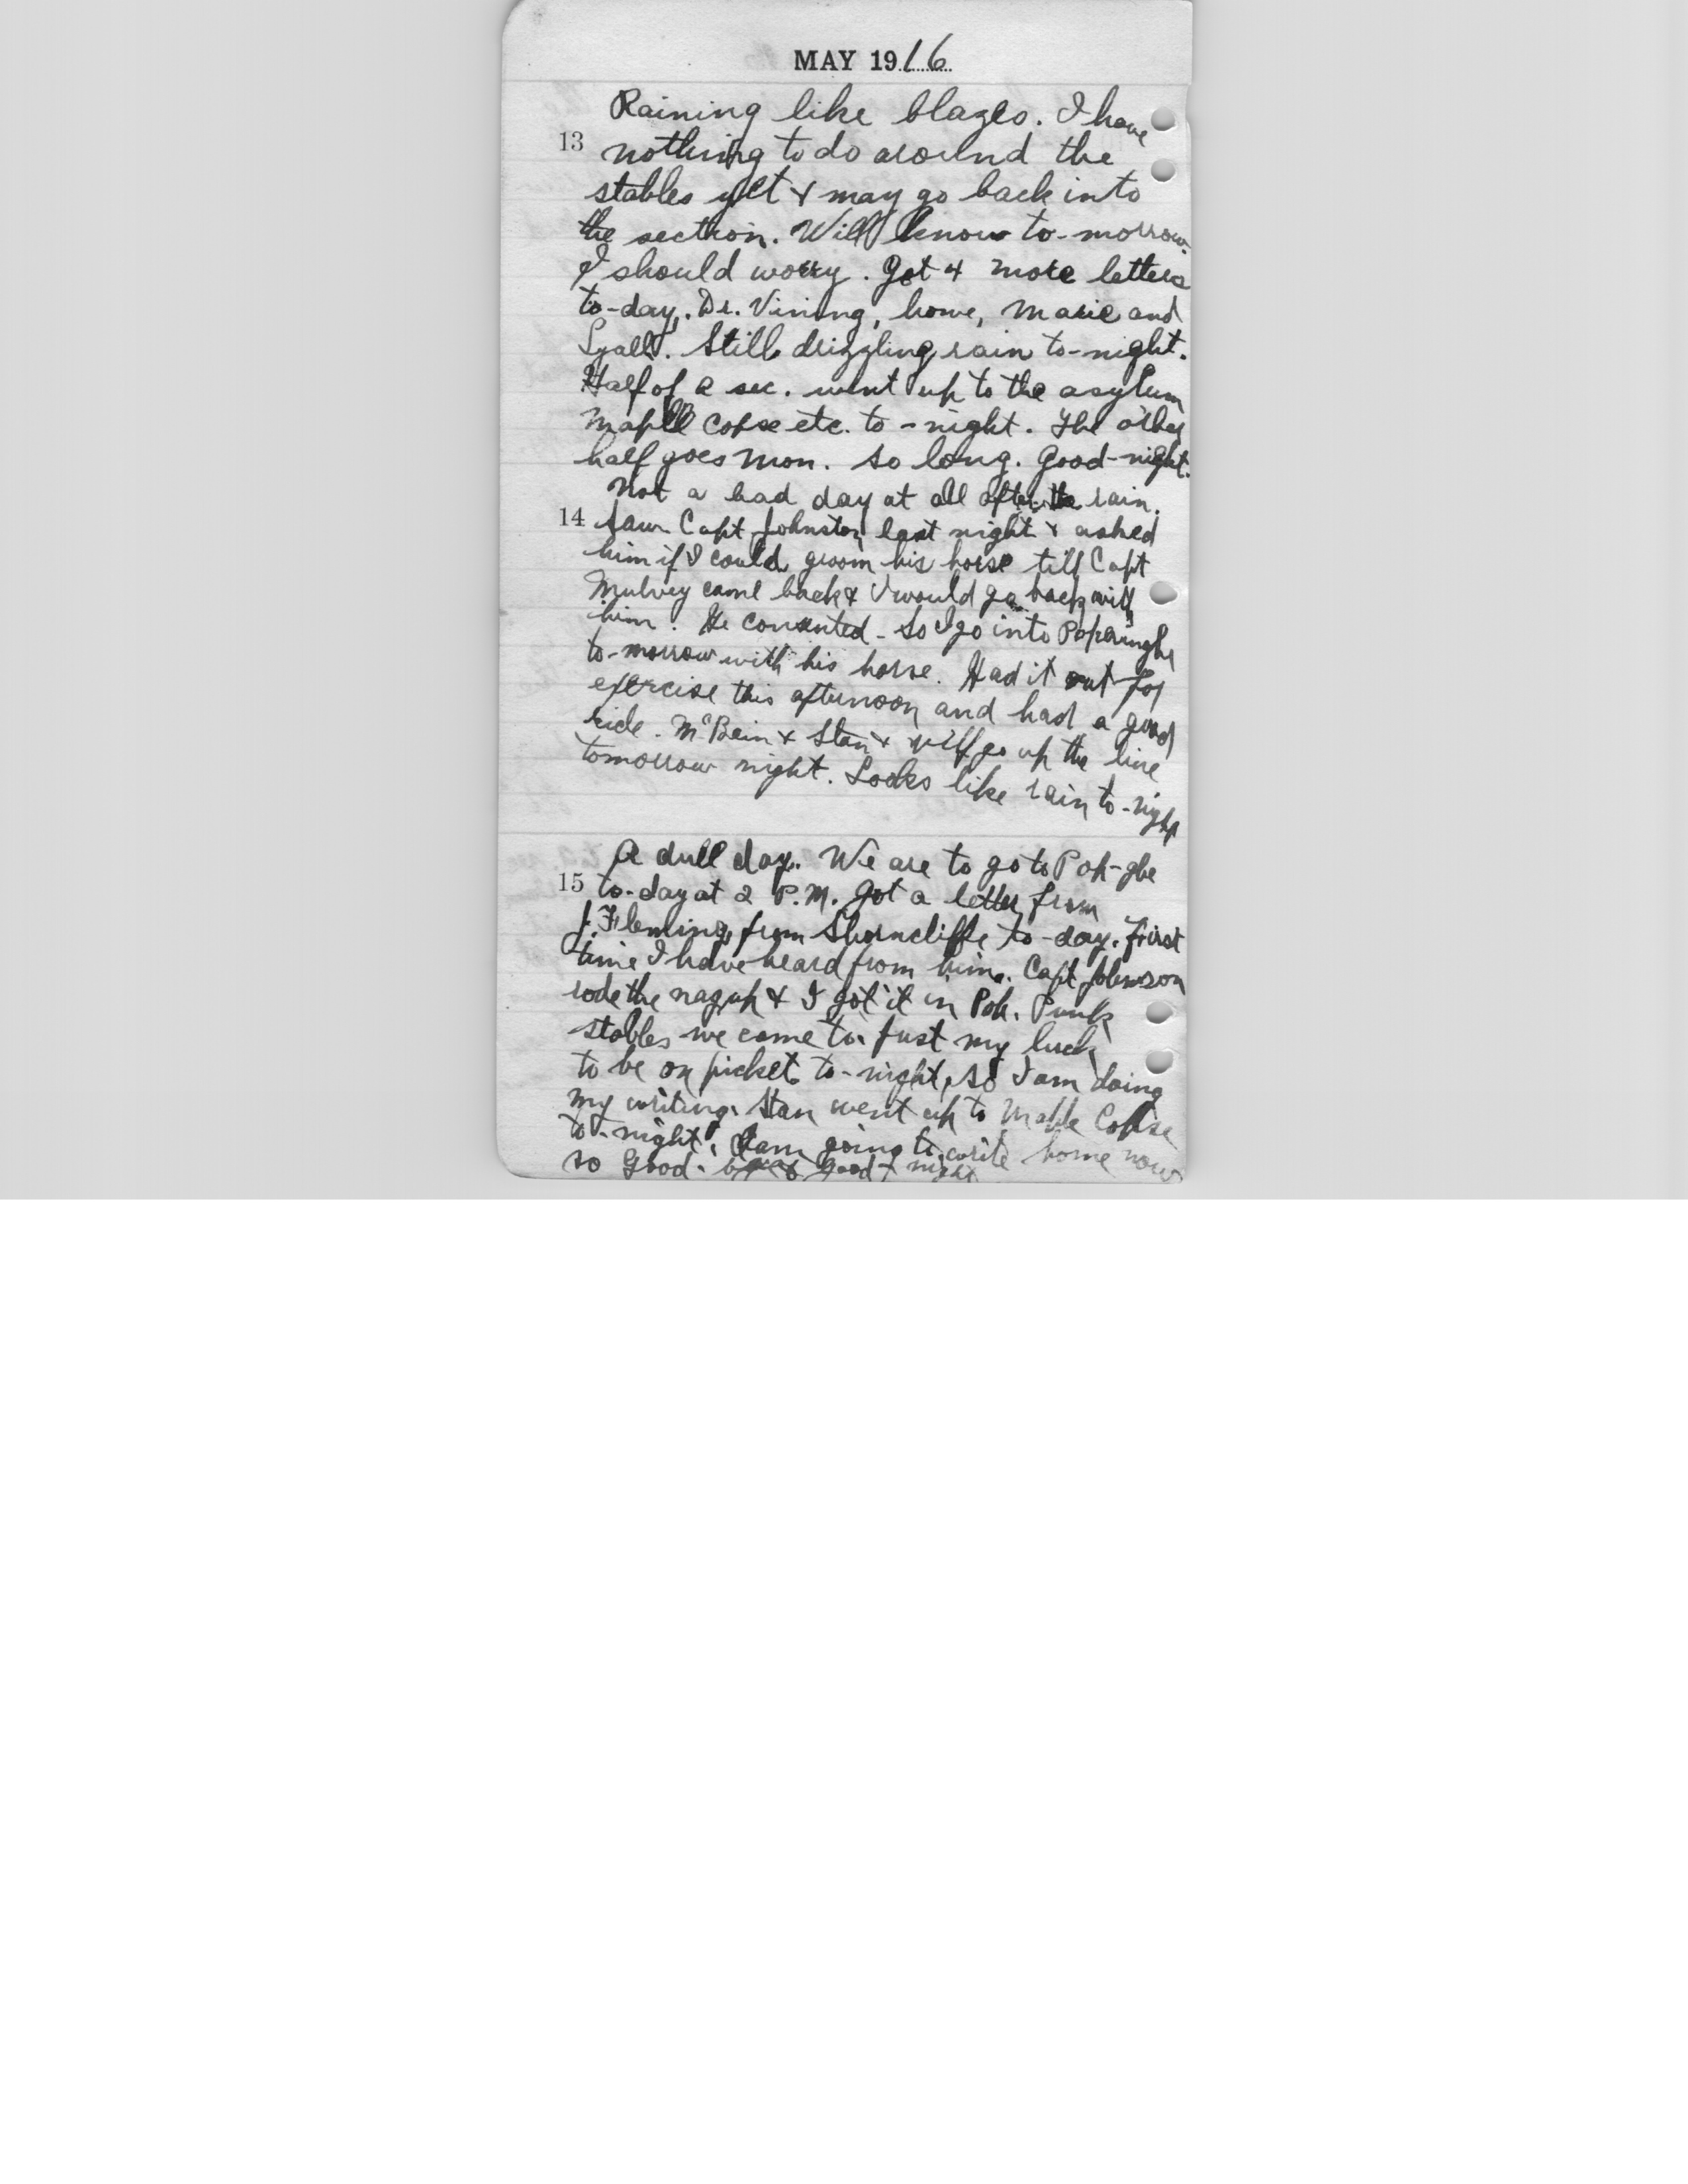 MAY 1916
Raining like blazes. I have
13 nothing to do around the
stables yet & may go back into
the section. Will know to-morrow.
I should worry. Got 4 more letters
to-day. Dr. Vining, home, Marie and
Lyall. Still drizzling rain to-night.
Half of a sec. went up to the asylum
Maple Copse etc. to-night. The other
half goes Mon. So long. Good-night.
Not a bad day at all after the rain.
14 Saw Capt Johnston last night & asked
him if I could groom his horse till Capt
Mulvey came back & I would go back with
him. He consented - So I go into Poperinghe
to-morrow with his horse. Had it out for
exercise this afternoon and had a good
ride. McBain & Stan & will go up the line
tomorrow night. Looks like rain to-night
A dull day. We are to go to Pop-ghe
15 to-day at 2 P.M. Got a letter from
J. Fleming from Shorncliffe to-day. First
time I have heard from him. Capt Johnson
rode the nag up & I got it in Pop. Punk
stables we came to. Just my luck
to be on picket to-night, so I am doing
my writing. Stan went up to Maple Copse
to-night. I am going to write home now
so Good-bye & Good-night